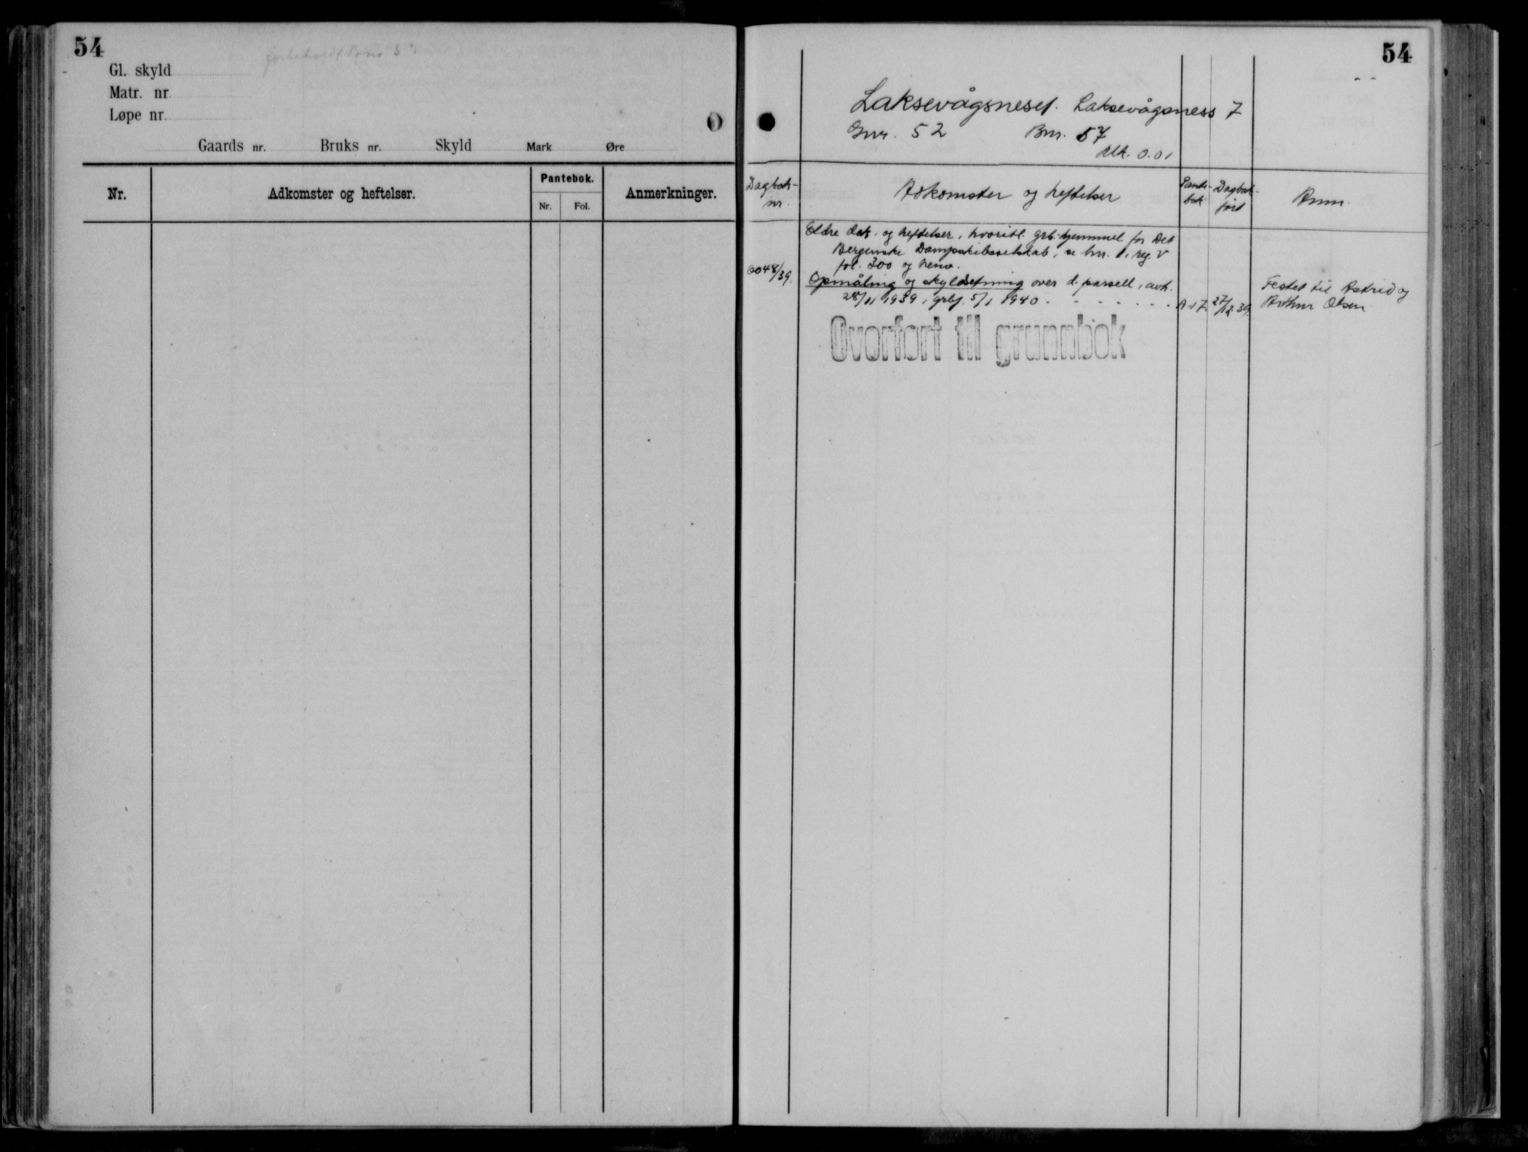 54
Gl. skyld
Matr. nr.
Løpe nr.
Gaards nr. Bruks nr. Skyld Mark Øre
Nr. Adkomster og heftelser. Pantebok. Anmerkninger.
Nr. Fol.
54
Laksevågsneset. Laksevågsness 7
Gnr. 52 Bnr. 57
Mk. 0.01
Dagbok-nr. Adkomster og heftelser Pante-bok Dagbok-ført Anm.
Eldre dok. og heftelser, hvoribl. grb.hjemmel for Det
Bergenske Dampskibsselskab, se bnr. 1, reg. V
fol. 300 og henv.
6048/39. Opmåling og skyldsetning over d. parsell, avh.
28/11 1939, grlj. 5/1 1940 - - - - - - - A 17 27/12 39.
Festet til Astrid og
Arthur Olsen
Overført til grunnbok